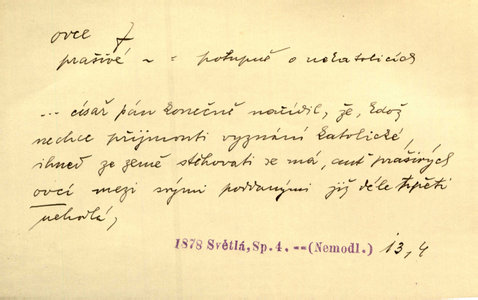 ovce f
prašivé ~ = potupně o nekatolících
... císař pán konečně nařídil, že, kdož
nechce přijmouti vyznání katolické,
ihned ze země stěhovati se má, anť prašivých
ovcí mezi svými poddanými již déle trpěti
nehodlá,
1878 Světlá, Sp. 4. -- (Nemodl.) 13,4